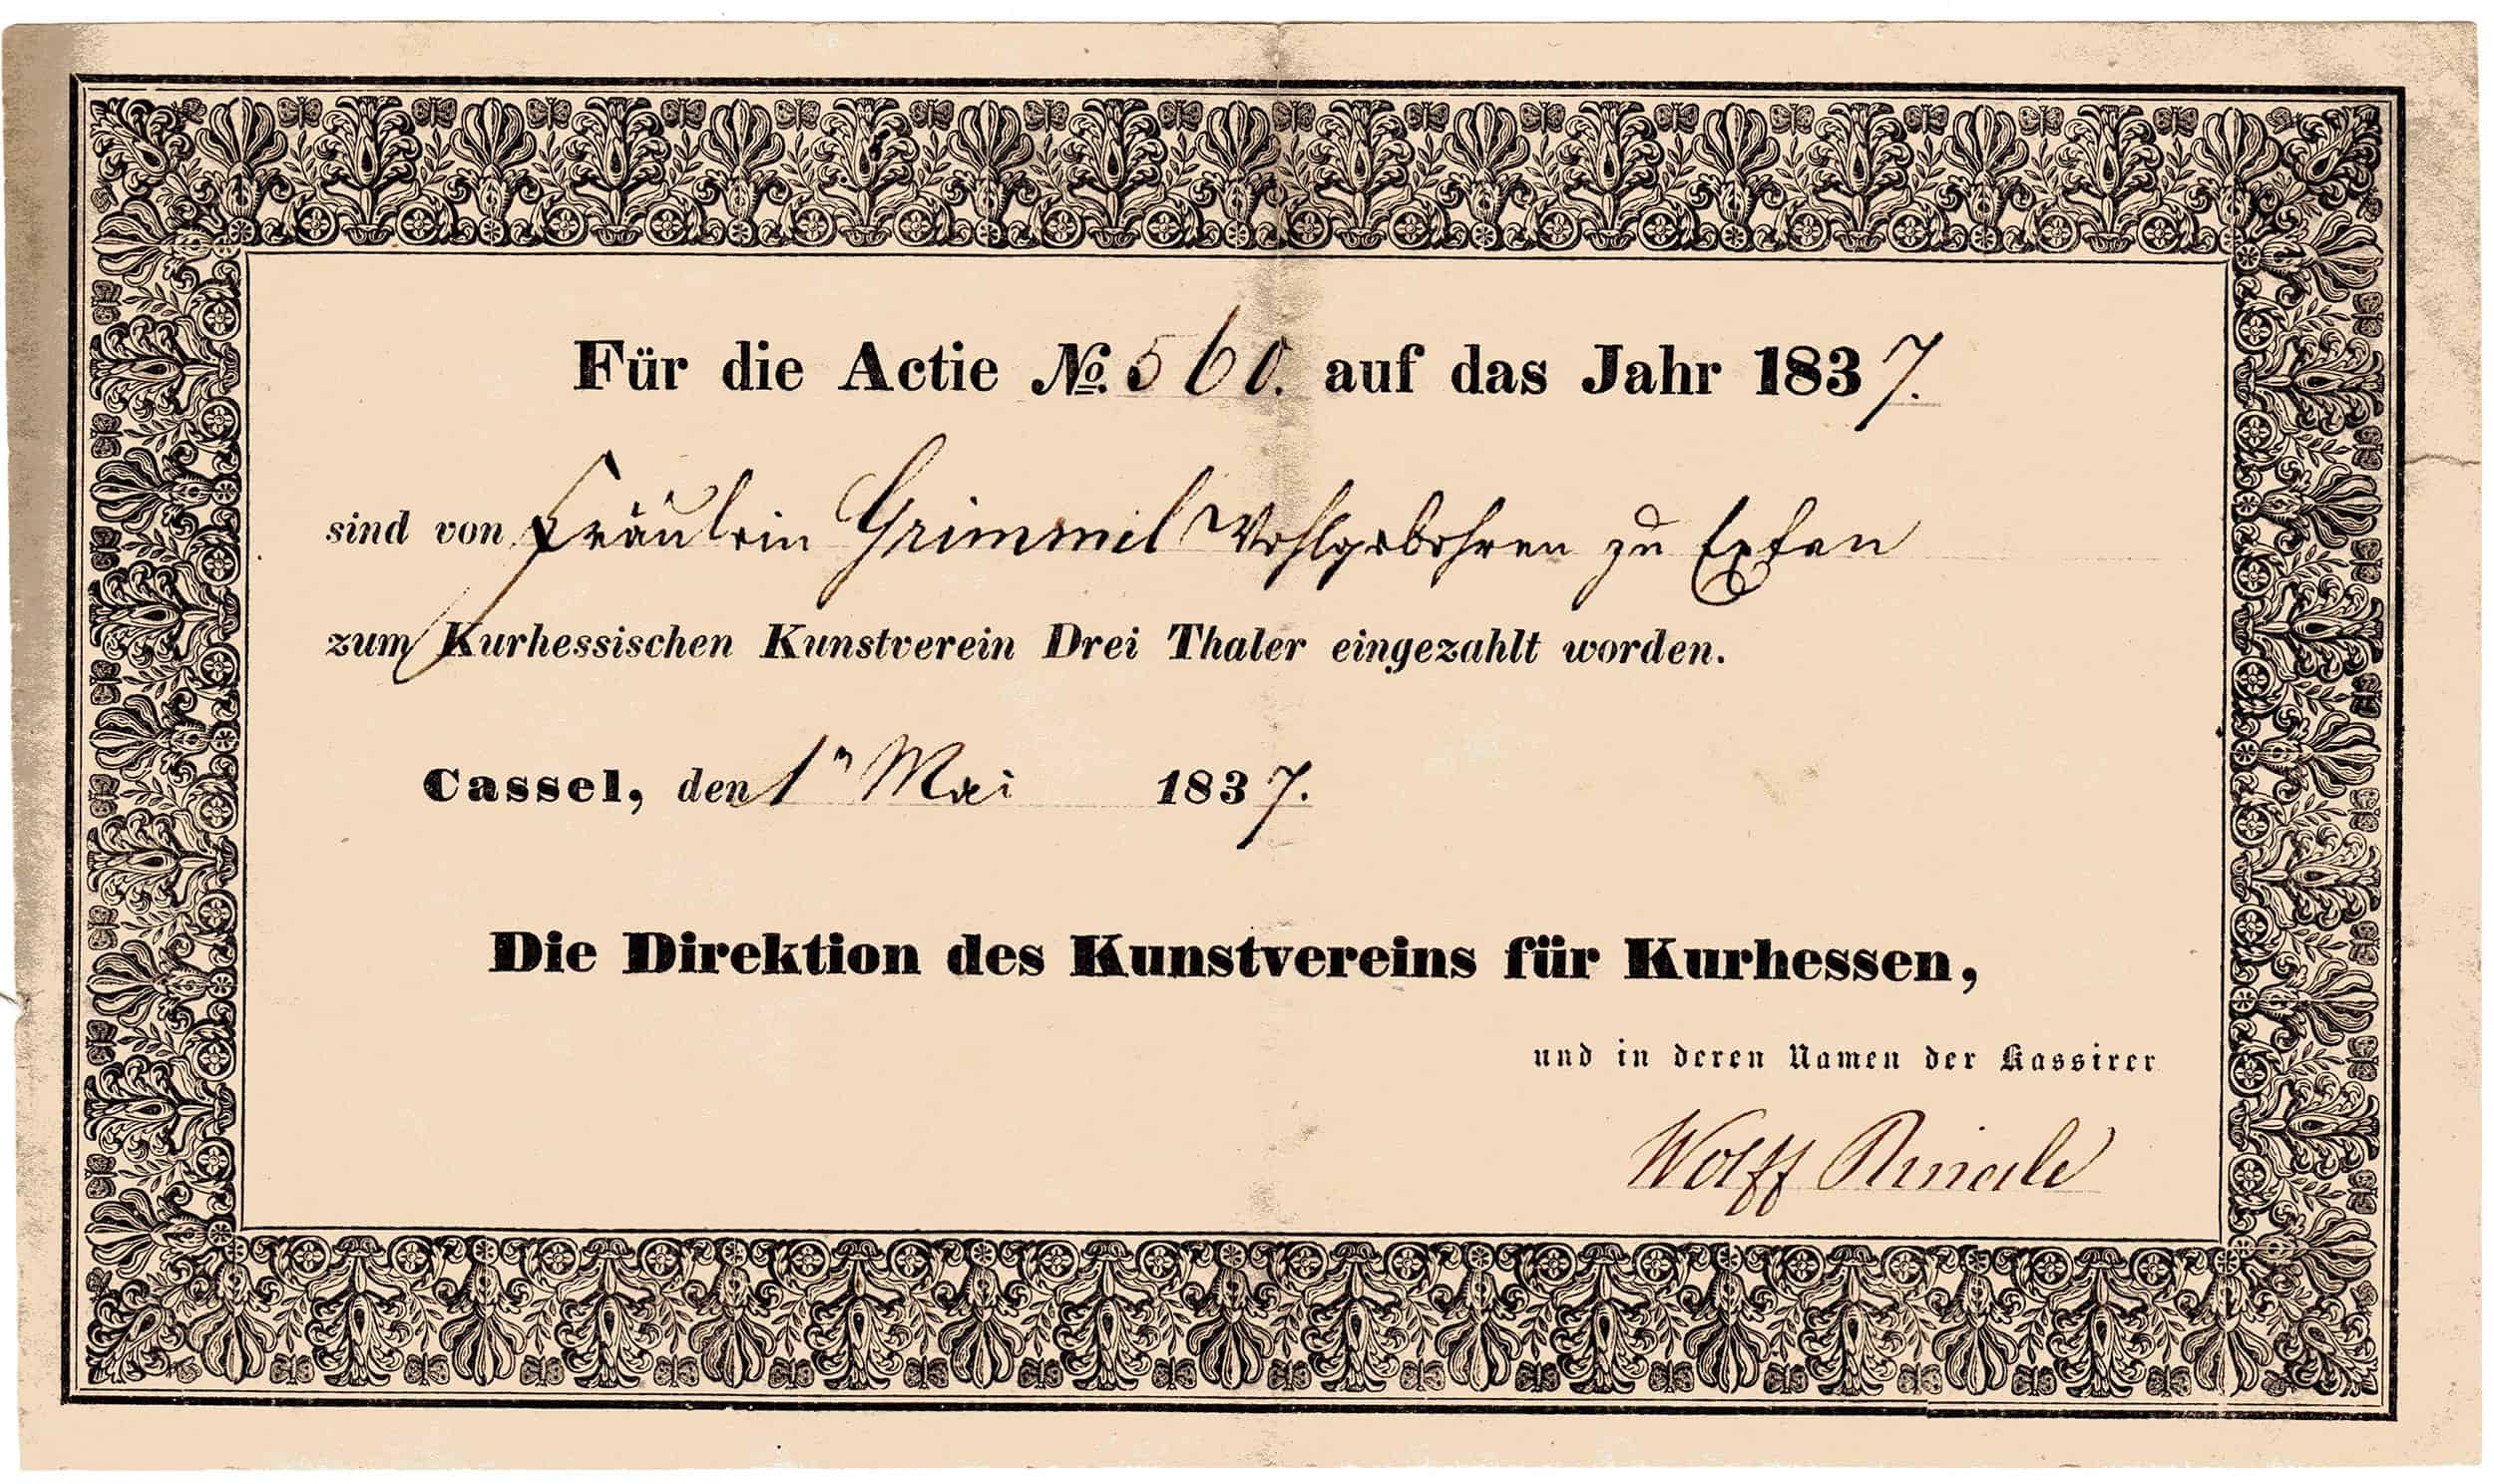 Für die Actie No. 560. auf das Jahr 1837.
sind von Fräulein Grimmel Wohlgebohren zu
zum Kurhessischen Kunstverein Drei Thaler eingezahlt worden.
Cassel, den 1n Mai 1837.
Die Direktion des Kunstvereins für Kurhessen,
und in deren Namen der Kassirer
Wolff